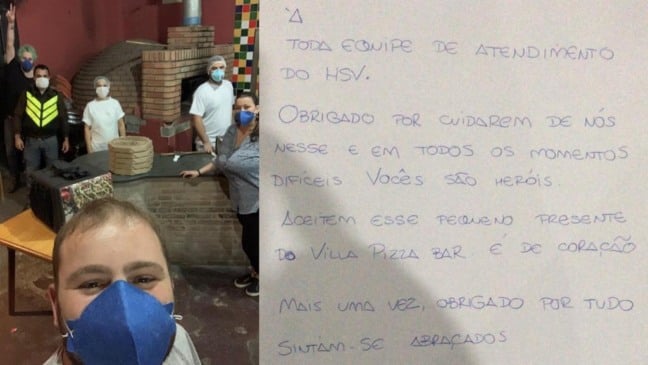 À
TODA EQUIPE DE ATENDIMENTO
DO HSV.
OBRIGADO POR CUIDAREM DE NÓS
NESSE E EM TODOS OS MOMENTOS
DIFÍCEIS VOCÊS SÃO HERÓIS.
ACEITEM ESSE PEQUENO PRESENTE
DO VILLA PIZZA BAR. É DE CORAÇÃO
MAIS UMA VEZ, OBRIGADO POR TUDO
SINTAM-SE ABRAÇADOS